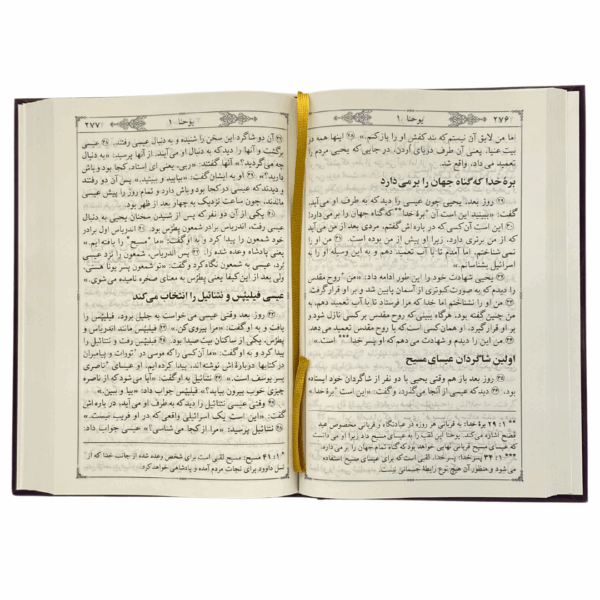 ۲۷۶ یوحنا ۱۰
اما من لایق آن نیستم که بند کفش او را باز کنم.» اینها همه در
بیت عنیا، یعنی آن طرف دریای اردن، در جایی که یحیی مردم را
تعمید می داد، واقع شد.
برهٔ خدا که گناه جهان را بر می دارد
روز بعد، یحیی چون عیسی را دید که به طرف او می آید،
گفت: «ببینید این است آن "برهٔ خدا"** که گناه جهان را بر می دارد؛
این است آن کسی که در باره اش گفتم، مردی بعد از من می آید
که از من برتری دارد، زیرا او پیش از من بوده است. من او را
نمی شناختم، اما آمدم تا با آب تعمید دهم و به این وسیله او را به
اسرائیل بشناسانم.»
یحیی شهادت خود را این طور ادامه داد: «من "روح مقدس"
را دیدم که به صورت کبوتری از آسمان پایین شد و بر او قرار گرفت.
من او را نشناختم اما خدا که مرا فرستاد تا با آب تعمید دهم، به
من چنین گفته بود، هرگاه ببینی که روح مقدس بر کسی نازل شود و
بر او قرار گیرد، او همان کسی است که با روح مقدس تعمید می دهد.
من این را دیدم و شهادت می دهم که او پسر خدا*** است.»
اولین شاگردان عیسای مسیح
روز بعد باز هم وقتی یحیی با دو نفر از شاگردان خود ایستاده
بود، دید که عیسی از آنجا می گذرد، و گفت: «این است "برهٔ خدا".»
** ۱: ۲۹ برهٔ خدا: به قربانی هر روزه در عبادتگاه و قربانی مخصوص عید
فصح اشاره می کند. یوحنا این لقب را به عیسای مسیح داد زیرا او می دانست
که عیسای مسیح قربانی نهایی خواهد بود که گناه تمام جهان را بر می دارد.
*** ۱: ۳۴ پسر خدا: پسر خدا، لقبی است که برای عیسای مسیح استفاده
می شود و منظور آن هیچ نوع رابطهٔ جسمانی نیست.
یوحنا ۱ ۲۷۷
آن دو شاگرد این سخن را شنیده و به دنبال عیسی رفتند. عیسی
برگشت و آنها را دید که به دنبال او می آیند. از آنها پرسید: «به دنبال
چه می گردید؟» آنها گفتند: «ربی، یعنی ای استاد، کجا بود و باش
دارید؟» او به ایشان گفت: «بیایید و ببینید.» پس آن دو رفتند
و دیدند که عیسی در کجا بود و باش دارد و تمام روز را پیش عیسی
ماندند، چون ساعت نزدیک به چهار بعد از ظهر بود.
یکی از آن دو نفر که پس از شنیدن سخنان یحیی به دنبال
عیسی رفت، اندریاس برادر شمعون پطرس بود. اندریاس اول برادر
خود شمعون را پیدا کرد و به او گفت: «ما "مسیح" را یافته ایم.»
یعنی پادشاه وعده شده را؛ پس اندریاس، شمعون را نزد عیسی
برد. عیسی به شمعون نگاه کرد و گفت: «تو شمعون پسر یونا هستی،
ولی بعد از این کیفا یعنی پطرس به معنای صخره نامیده می شوی.»
عیسی فیلیپُس و نتنائیل را انتخاب می کند
روز بعد وقتی عیسی می خواست به جلیل برود، فیلیپُس را
یافت و به او گفت: «مرا پیروی کن.» فیلیپُس مانند اندریاس و
پطرُس، یکی از ساکنان بیت صیدا بود. فیلیپُس رفت و نتنائیل را
پیدا کرد و به او گفت: «ما آن کسی را که موسی در تورات و پیامبران
در کتابها، دربارهٔ اش نوشته اند، پیدا کرده ایم. او عیسای "ناصری
پسر یوسف است.» نتنائیل به او گفت: «آیا می شود که از ناصره
چیزی خوب بیرون بیاید؟» فیلیپُس جواب داد: «بیا و ببین.»
وقتی عیسی نتنائیل را دید که به طرف او می آید، در باره اش
گفت: «این است یک اسرائیلی واقعی که در او فریب نیست.»
نتنائیل پرسید: «مرا از کجا می شناسی؟» عیسی جواب داد:
* ۱: ۴۱ مسیح: مسیح لقبی است برای شخص وعده شده از جانب خدا که از
نسل داوود برای نجات مردم آمده و پادشاهی خواهد کرد.